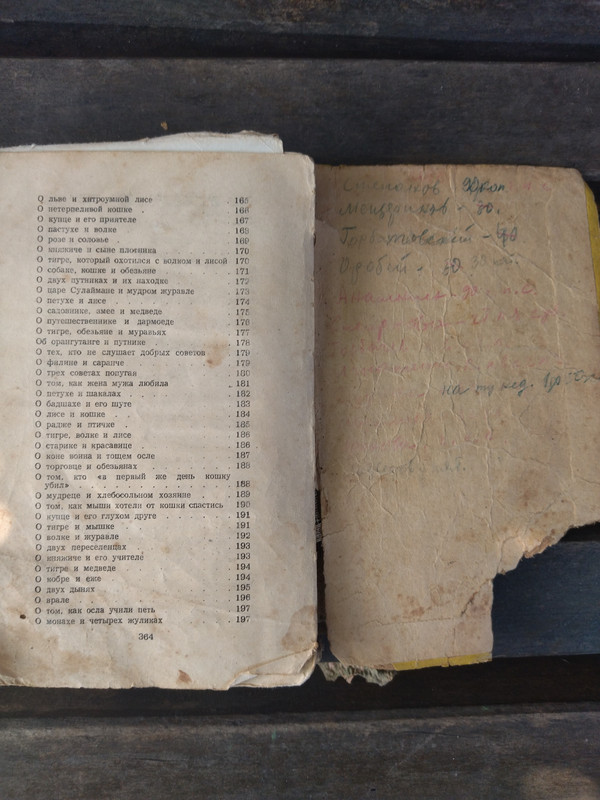 О льве и хитроумной лисе . 165
О нетерпеливой кошке . 166
О купце и его приятеле . 167
О пастухе и волке . 168
О розе и соловье . . 169
О княжиче и сыне плотника . 170
О тигре, который охотился с волком и лисой 170
О собаке, кошке и обезьяне . . 171
О двух путниках и их находке . 172
О царе Сулаймане и мудром журавле . 173
О петухе и лисе . . . . . 174
О садовнике, змее и медведе . 175
О путешественнике и дармоеде . 176
О тигре, обезьяне и муравьях . 177
Об орангутанге и путнике . . 178
О тех, кто не слушает добрых советов . 179
О филине и саранче . . 179
О трех советах попугая . 180
О том, как жена мужа любила . . 181
О петухе и шакалах . . . 182
О бадшахе и его шуте . 183
О лисе и кошке . . 184
О радже и птичке . 185
О тигре, волке и лисе . 186
О старике и красавице . . 186
О коне воина и тощем осле . 187
О торговце и обезьянах . . 188
О том, кто «в первый же день кошку
убил» . . . . . . . . . . . . 188
О мудреце и хлебосольном хозяине . . 189
О том, как мыши хотели от кошки спастись 190
О купце и его глухом друге . . . . . 191
О тигре и мышке . . 191
О волке и журавле . 192
О двух переселенцах . . 193
О княжиче и его учителе . 193
О тигре и медведе . . 194
О кобре и еже . . 194
О двух дынях . . 195
О врале . . 196
О том, как осла учили петь . . 197
О монахе и четырех жуликах . . 197
364
- 30.